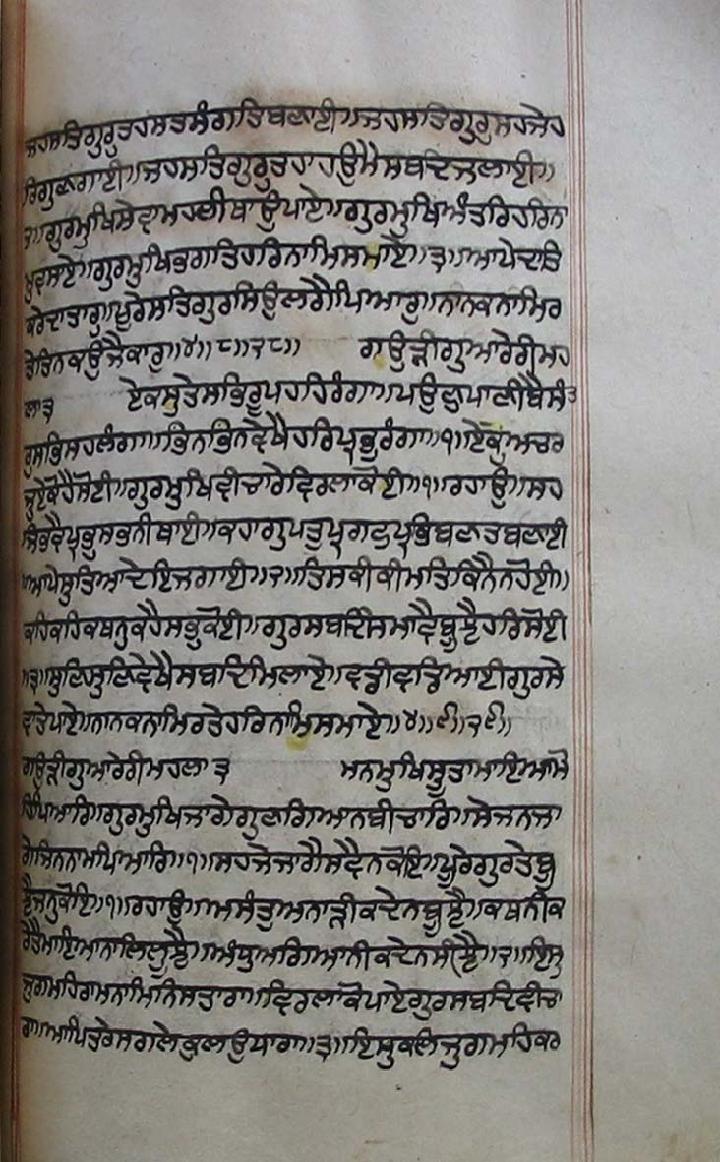 ਜਹਸਤਿਗੁਰੁਤਹਸਤਸੰਗਤਿਬਣਾਈ॥ਜਹਸਤਿਗੁਰੁਸਹਜੇਹ
ਰਿਗੁਣਗਾਈ॥ਜਹਸਤਿਗੁਰੁਤਹਾਹਉਮੈਸਬਦਿਜਲਾਈ॥
੨॥ਗੁਰਮੁਖਿਸੇਵਾਮਹਲੀਥਾਉਪਾਏ॥ਗੁਰਮੁਖਿਅੰਤਰਿਹਰਿਨਾ
ਮੁਵਸਾਏ॥ਗੁਰਮੁਖਿਭਗਤਿਹਰਿਨਾਮਿਸਮਾਏ॥੩॥ਆਪੇਦਾਤਿ
ਕਰੇਦਾਤਾਰੁ॥ਪੂਰੇਸਤਿਗੁਰਸਿਉਲਗੈਪਿਆਰੁ॥ਨਾਨਕਨਾਮਿਰ
ਤੇਤਿਨਕਉਜੈਕਾਰੁ॥੪॥੮॥੨੮॥ ਗਉੜੀਗੁਆਰੇਰੀਮਹ
ਲਾ੩ ਏਕਸੁਤੇਸਭਿਰੂਪਹਹਿਰੰਗਾ॥ਪਉਣੁਪਾਣੀਬੈਸੰਤ
ਰੁਸਭਿਸਹਲੰਗਾ॥ਭਿਨਭਿਨਵੇਖੈਹਰਿਪ੍ਰਭੁਰੰਗਾ॥੧॥ਏਕੁਅਚਰ
ਜੁਏਕੋਹੈਸੋਈ॥ਗੁਰਮੁਖਿਵੀਚਾਰੇਵਿਰਲਾਕੋਈ॥੧॥ਰਹਾਉ॥ਸਹ
ਜਿਭਵੈਪ੍ਰਭੁਸਭਨੀਥਾਈ॥ਕਹਾਗੁਪਤੁਪ੍ਰਗਟੁਪ੍ਰਭਿਬਣਤਬਣਾਈ
॥ਆਪੇਸੁਤਿਆਦੇਇਜਗਾਈ॥੨॥ਤਿਸਕੀਕੀਮਤਿਕਿਨੈਨਹੋਈ॥
ਕਹਿਕਹਿਕਥਨੁਕਹੈਸਭੁਕੋਈ॥ਗੁਰਸਬਦਿਸਮਾਵੈਬੂਝੈਹਰਿਸੋਈ
॥੩॥ਸੁਣਿਸੁਣਿਵੇਖੈਸਬਦਿਮਿਲਾਏ॥ਵਡੀਵਡਿਆਈਗੁਰਸੇ
ਵਾਤੇਪਾਏ॥ਨਾਨਕਨਾਮਿਰਤੇਹਰਿਨਾਮਿਸਮਾਏ॥੪॥੯॥੨੯॥
ਗਉੜੀਗੁਆਰੇਰੀਮਹਲਾ੩ ਮਨਮੁਖਿਸੂਤਾਮਾਇਆਮੋ
ਹਿਪਿਆਰਿ॥ਗੁਰਮੁਖਿਜਾਗੇਗੁਣਗਿਆਨਬੀਚਾਰਿ॥ਸੇਜਨਜਾ
ਗੇਜਿਨਨਾਮਪਿਆਰਿ॥੧॥ਸਹਜੇਜਾਗੈਸਵੈਨਕੋਇ॥ਪੂਰੇਗੁਰਤੇਬੂ
ਝੈਜਨੁਕੋਇ॥੧॥ਰਹਾਉ॥ਅਸੰਤੁਅਨਾੜੀਕਦੇਨਬੂਝੈ॥ਕਥਨੀਕ
ਰੇਤੈਮਾਇਆਨਾਲਿਲੂਝੈ॥ਅੰਧੁਅਗਿਆਨੀਕਦੇਨਸੀਝੈ॥੨॥ਇਸੁ
ਜੁਗਮਹਿਰਾਮਨਾਮਿਨਿਸਤਾਰਾ॥ਵਿਰਲਾਕੋਪਾਏਗੁਰਸਬਦਿਵੀਚਾ
ਰਾ॥ਆਪਿਤਰੇਸਗਲੇਕੁਲਉਧਾਰਾ॥੩॥ਇਸੁਕਲਿਜੁਗਮਹਿਕਰ